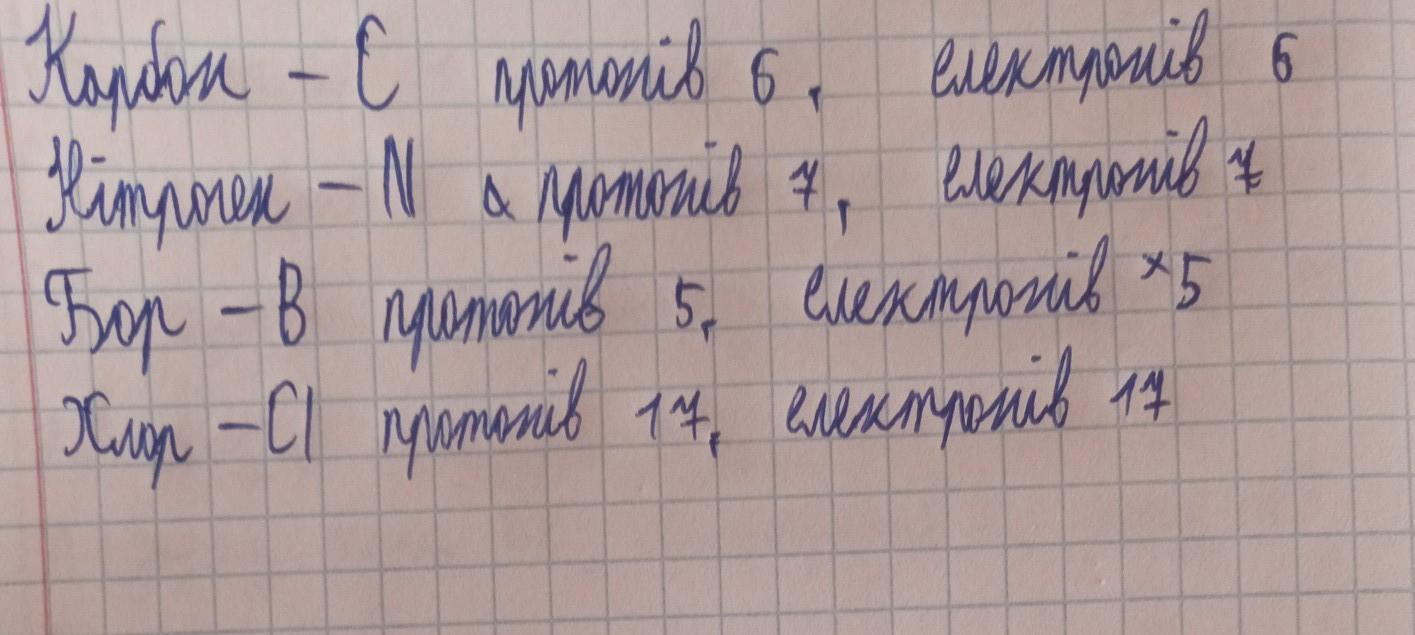 Карбон – C протонів 6, електронів 6
Нітроген – N протонів 7, електронів 7
Бор – B протонів 5, електронів 5
Хлор – Cl протонів 17, електронів 17